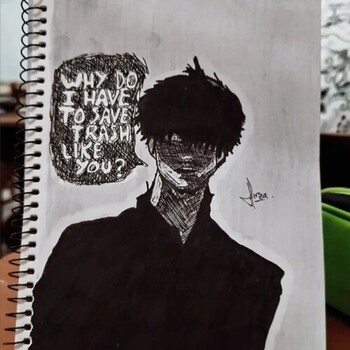 WHY DO
I HAVE
TO SAVE
TRASH
LIKE
YOU?